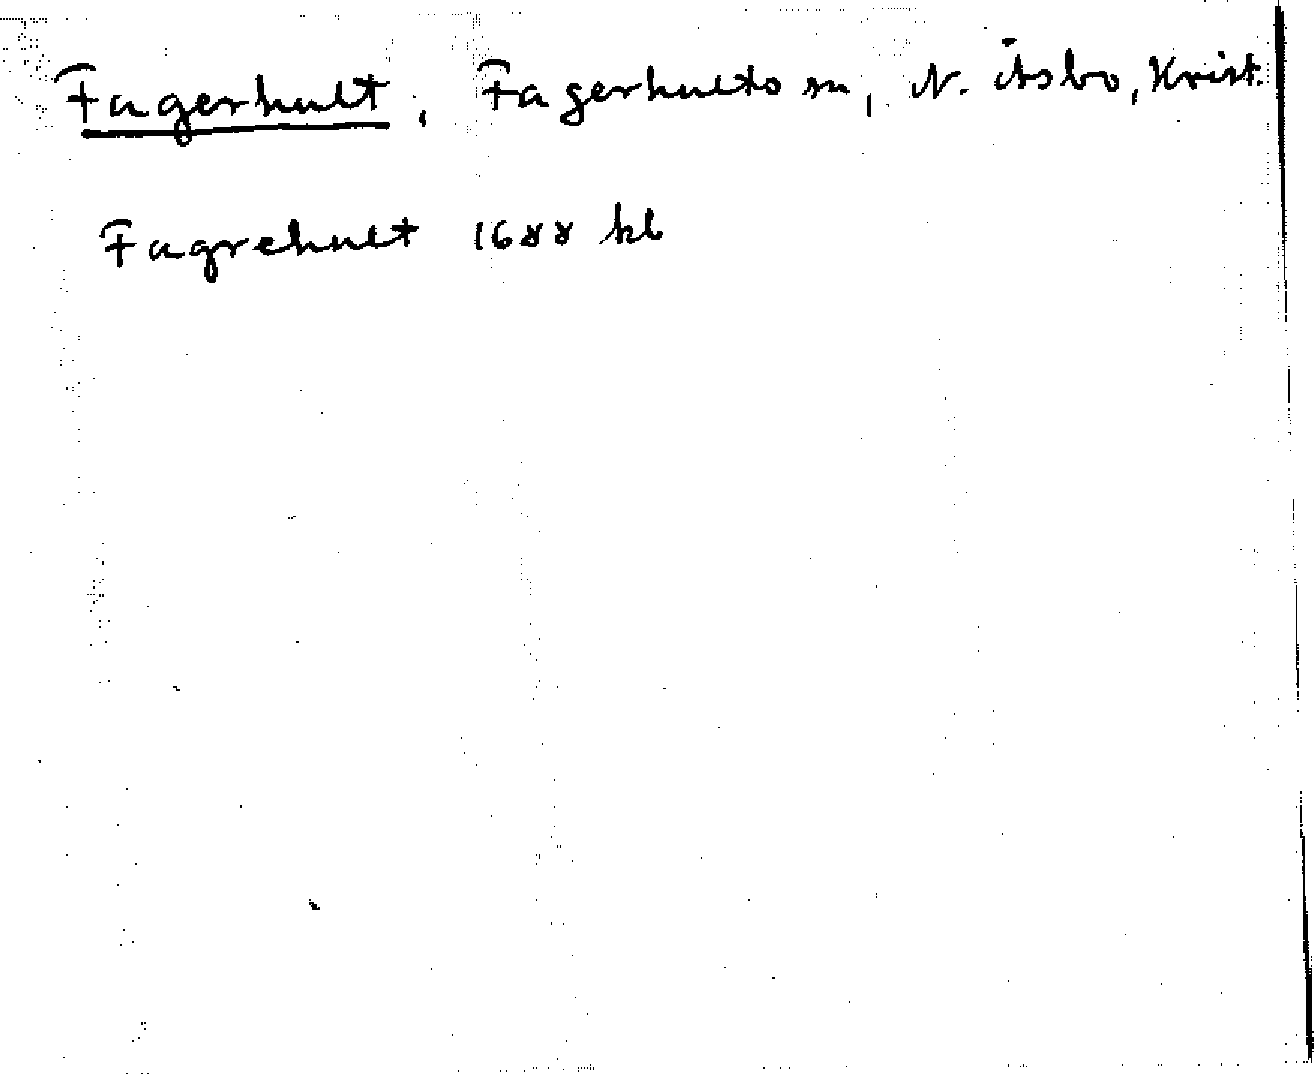 Fagerhult, Fagerhults sn, N. Åsbo, Krist.
Fagrehult 1688 kb